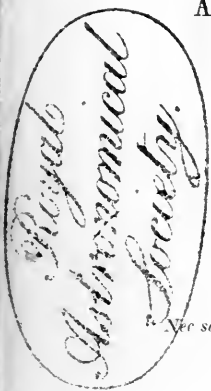 A
Royal
Astronomical
Society.
Nec se